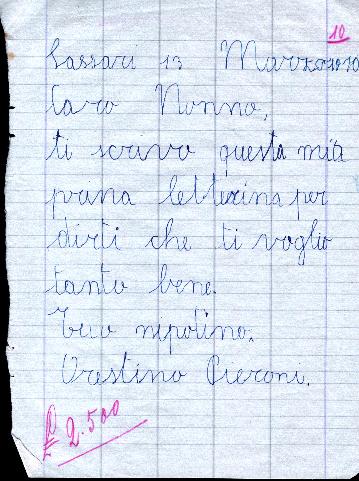 10
Sassari 13 Marzo 1910
Caro Nonno,
ti scrivo questa mia
prima letterina per
dirti che ti voglio
tanto bene.
Tuo nipotino.
Orestino Pieroni.
2.500